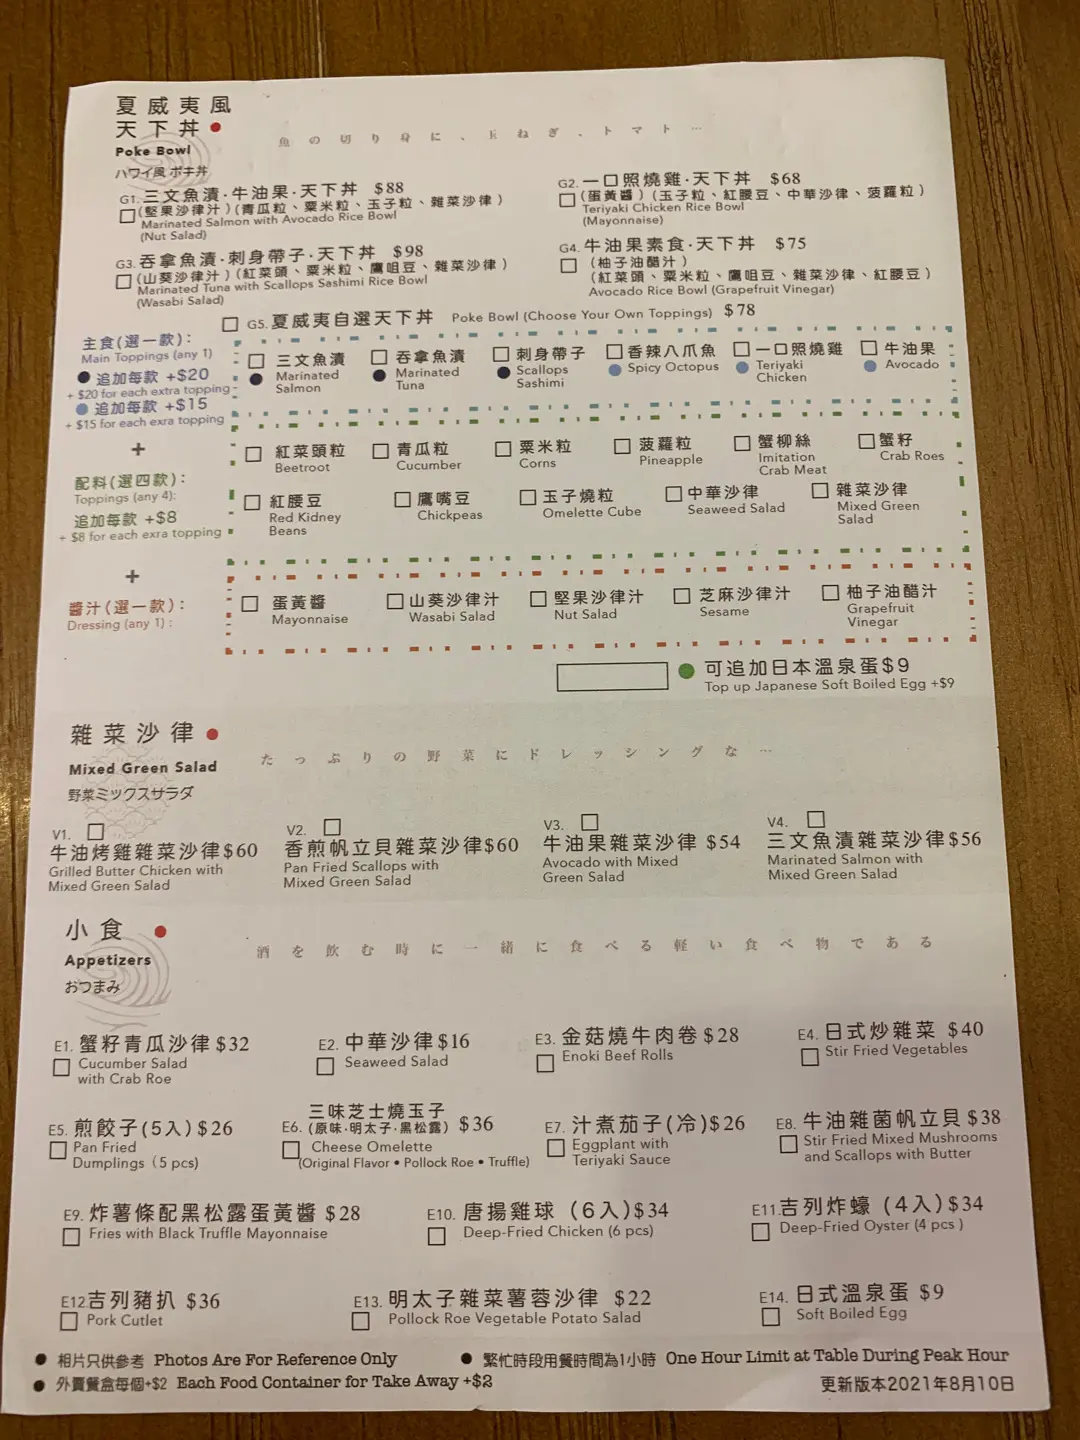 夏威夷風
天下丼
Poke Bowl
ハワイ風 ポキ丼
魚の切り身に、玉ねぎ、トマト…
G1. 三文魚漬·牛油果·天下丼 $88
(堅果沙律汁)(青瓜粒、粟米粒、玉子粒、雜菜沙律)
Marinated Salmon with Avocado Rice Bowl
(Nut Salad)
G2. 一口照燒雞·天下丼 $68
(蛋黃醬)(玉子粒、紅腰豆、中華沙律、菠蘿粒)
Teriyaki Chicken Rice Bowl
(Mayonnaise)
G3. 吞拿魚漬·刺身帶子·天下丼 $98
(山葵沙律汁)(紅菜頭、粟米粒、鷹咀豆、雜菜沙律)
Marinated Tuna with Scallops Sashimi Rice Bowl
(Wasabi Salad)
G4. 牛油果素食·天下丼 $75
(柚子油醋汁)
(紅菜頭、粟米粒、鷹咀豆、雜菜沙律、紅腰豆)
Avocado Rice Bowl (Grapefruit Vinegar)
G5. 夏威夷自選天下丼 Poke Bowl (Choose Your Own Toppings) $78
主食(選一款):
Main Toppings (any 1)
追加每款 +$20
+ $20 for each extra topping
追加每款 +$15
+ $15 for each exra topping
三文魚漬
Marinated
Salmon
吞拿魚漬
Marinated
Tuna
刺身帶子
Scallops
Sashimi
香辣八爪魚
Spicy Octopus
一口照燒雞
Teriyaki
Chicken
牛油果
Avocado
+
配料(選四款):
Toppings (any 4):
追加每款 +$8
+ $8 for each exra topping
紅菜頭粒
Beetroot
青瓜粒
Cucumber
粟米粒
Corns
菠蘿粒
Pineapple
蟹柳絲
Imitation
Crab Meat
蟹籽
Crab Roes
紅腰豆
Red Kidney
Beans
鷹嘴豆
Chickpeas
玉子燒粒
Omelette Cube
中華沙律
Seaweed Salad
雜菜沙律
Mixed Green
Salad
+
醬汁(選一款):
Dressing (any 1) :
蛋黃醬
Mayonnaise
山葵沙律汁
Wasabi Salad
堅果沙律汁
Nut Salad
芝麻沙律汁
Sesame
柚子油醋汁
Grapefruit
Vinegar
可追加日本溫泉蛋$9
Top up Japanese Soft Boiled Egg +$9
雜菜沙律
Mixed Green Salad
野菜ミックスサラダ
たっぷりの野菜にドレッシングな…
V1.
牛油烤雞雜菜沙律$60
Grilled Butter Chicken with
Mixed Green Salad
V2.
香煎帆立貝雜菜沙律$60
Pan Fried Scallops with
Mixed Green Salad
V3.
牛油果雜菜沙律 $54
Avocado with Mixed
Green Salad
V4.
三文魚漬雜菜沙律$56
Marinated Salmon with
Mixed Green Salad
小食
Appetizers
おつまみ
酒を飲む時に一緒に食べる軽い食べ物である
E1. 蟹籽青瓜沙律 $32
Cucumber Salad
with Crab Roe
E2. 中華沙律$16
Seaweed Salad
E3. 金菇燒牛肉卷 $28
Enoki Beef Rolls
E4. 日式炒雜菜 $40
Stir Fried Vegetables
E5. 煎餃子(5入)$26
Pan Fried
Dumplings (5 pcs)
E6. 三味芝士燒玉子
(原味·明太子·黑松露) $36
Cheese Omelette
(Original Flavor • Pollock Roe • Truffle)
E7. 汁煮茄子(冷)$26
Eggplant with
Teriyaki Sauce
E8. 牛油雜菌帆立貝 $38
Stir Fried Mixed Mushrooms
and Scallops with Butter
E9. 炸薯條配黑松露蛋黃醬 $28
Fries with Black Truffle Mayonnaise
E10. 唐揚雞球 (6入)$34
Deep-Fried Chicken (6 pcs)
E11.吉列炸蠔 (4入)$34
Deep-Fried Oyster (4 pcs )
E12吉列豬扒 $36
Pork Cutlet
E13. 明太子雜菜薯蓉沙律 $22
Pollock Roe Vegetable Potato Salad
E14. 日式溫泉蛋 $9
Soft Boiled Egg
● 相片只供參考 Photos Are For Reference Only
● 繁忙時段用餐時間為1小時 One Hour Limit at Table During Peak Hour
● 外賣餐盒每個+$2 Each Food Container for Take Away +$2
更新版本2021年8月10日